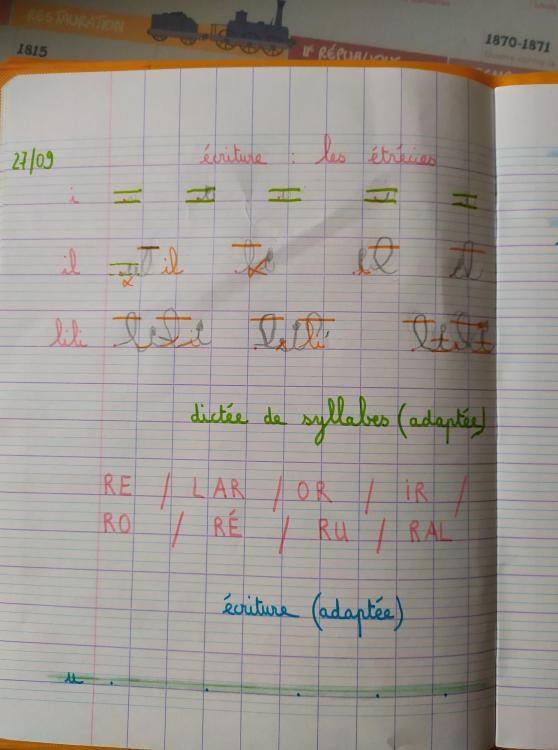 RESTAURATION
1815
IIe RÉPUBLIQUE
1870-1871
27/09
écriture : les étrécies
i
il il
lili
dictée de syllabes (adaptée)
RE / LAR / OR / iR /
RO / RÉ / RU / RAL
écriture (adaptée)
u